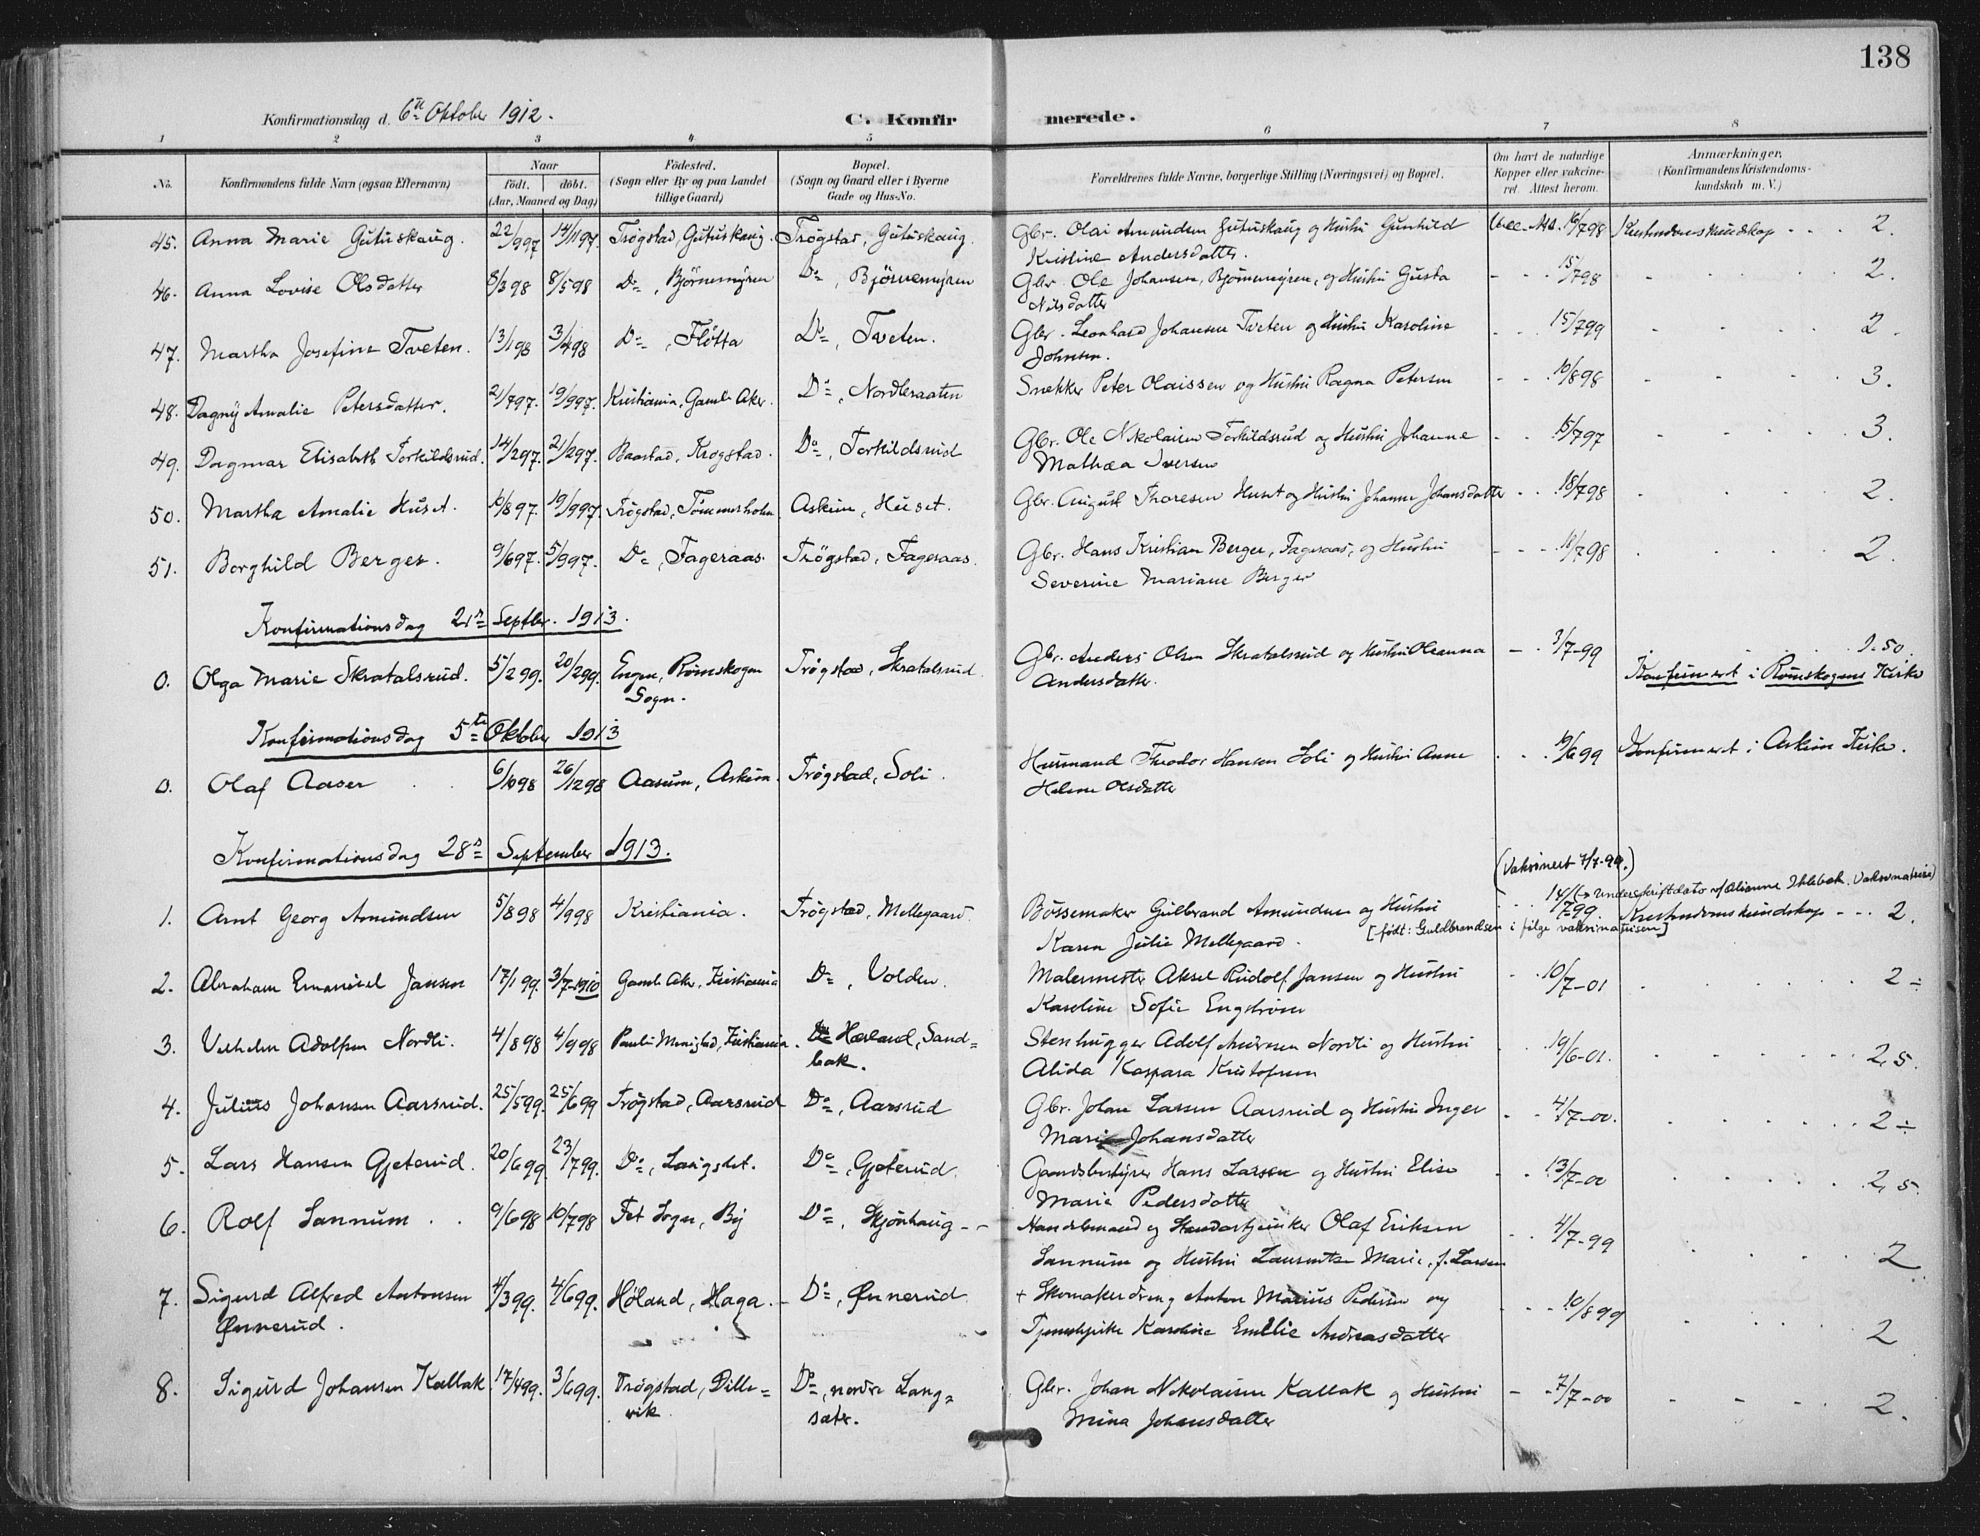 138
Konfirmationsdag d. 6te Oktober 1912. C. Konfir merede.
1 2 3 4 5 6 7 8
No. Konfirmandens fulde Navn (ogsaa Efternavn) Naar født. døbt. (Aar, Maaned og Dag) Fødested. (Sogn eller By og paa Landet tillige Gaard) Bopæl. (Sogn og Gaard eller i Byerne Gade og Hus-No. Forældrenes fulde Navne, borgerlige Stilling (Næringsvei) og Bopæl. Om havt de naturlige Kopper eller vakcineret. Attest herom. Anmærkninger. (Konfirmandens Kristendomskundskab m. V.)
45. Anna Marie Gutuskaug. 22/9 97 14/11 97. Trøgstad, Gutuskaug. Trøgstad, Gutuskaug. Gbr. Olai Amundsen Gutuskaug og Hustru Gunhild 16/7 98 Kristendomskundskap - - - 2.
Kristine Andersdatter.
46. Anna Lovise Olsdatter 8/3 98 8/5 98 Do, Bjørnemyren Do, Bjørnemyren Gbr. Ole Johansen, Bjørnemyren, og Hustru Gusta 15/7 98 2.
Nilsdatter
47. Martha Josefine Tveten. 13/1 98 3/4 98 Do, Fløtta Do, Tveten. Gbr. Leonhard Johansen Tveten og Hustru Karoline 15/7 99 2.
Johnsen.
48. Dagny Amalie Petersdatter. 21/7 97. 19/9 97. Kristiania, Gamle Aker. Do, Nordbraaten Snekker Peter Olaissen og Hustru Ragna Petersen 10/8 98 3.
49. Dagmar Elisabeth Torkildsrud. 14/2 97. 21/2 97. Baastad, Trøgstad. Do, Torkildsrud Gbr. Ole Nikolaisen Torkildsrud og Hustru Johanne 15/7 97 3.
Mathea Iversen
50. Martha Amalie Huset. 10/8 97. 19/9 97. Trøgstad, Tømmerholm Askim, Huset. Gbr. August Thoresen Huset og Hustru Johanne Johansdatter 18/7 98 2.
51. Borghild Berger. 9/6 97. 5/9 97. Do, Fageraas. Trøgstad, Fageraas. Gbr. Hans Kristian Berger, Fageraas, og Hustru 11/7 98 2.
Severine Mariane Berger
Konfirmationsdag 21de Septbr. 1913.
0. Olga Marie Skratalsrud. 5/2 99. 20/2 99. Engen, Rømskogen Trøgstad, Skratalsrud. Gbr. Anders Olsen Skratalsrud og Hustru Oleanna 3/7-99 1.50.
Sogn. Andersdatter. Konfirmert i Rømskogens Kirke
Konfirmationsdag 5te Oktober 1913
0. Olaf Aaser 6/10 98 26/12 98 Aasum, Askim. Trøgstad, Soli. Husmand Theodor Hansen Soli og Hustru Anne 19/6 99 Konfirmert i Askim Kirke.
Helene Olsdatter
Konfirmationsdag 28de September 1913.
(Vaksinert 7/7-99.)
14/7 99. underskriftdato
1. Arnt Georg Amundsen 5/8 98 4/9 98 Kristiania. Trøgstad, Mellegaard. Børsemaker Gulbrand Amundsen og Hustru Kristendomskundskap - - - 2.
Karen Julie Mellegaard. [født: Guldbrandsen i følge vaksinattesten]
2. Abraham Emanuel Jansen 17/1 99. 3/7-1910 Gamle Aker, Kristiania Do, Volden. Malermester Aksel Rudolf Jansen og Hustru 10/7-01 2 ÷
Karoline Sofie Engstrøm
3. Vilhelm Adolfsen Nordli. 4/8 98 4/9 98 Pauli Menighed, Kristiania. Do Havland, Sand= Stenhugger Adolf Andresen Nordli og Hustru 19/6-01. 2,5.
bak. Alida Kaspara Kristofersen
4. Julius Johansen Aarsrud. 25/5 99. 25/6 99 Trøgstad, Aarsrud Do, Aarsrud Gbr. Johan Larsen Aarsrud og Hustru Inger 4/7-00. 2 ÷
Marie Johansdatter
5. Lars Hansen Gjeterud. 20/6 99 23/7 99. Do, Langset. Do, Gjeterud. Gaardsbestyrer Hans Larsen og Hustru Elise 13/7-00 2,5.
Marie Pedersdatter
6. Rolf Sannum. 9/6 98 10/7 98 Fet Sogn, By Do, Skjønhaug Handelsmand og Olaf Eriksen 4/7-99 2
Sannum og Hustru Laurentse Marie, f. Larsen
7. Sigurd Alfred Antonsen 4/3 99. 4/6 99. Høland, Haga. Do, Ønnerud + Skomakerdreng Anton Marius Pedersen og 10/8 99 2
Ønnerud. Tjenestepike Karoline Emilie Andreasdatter
8. Sigurd Johansen Kallak 17/4 99. 3/6 99. Trøgstad, Dille= Do, nordre Lang= Gbr. Johan Nikolaisen Kallak og Hustru 7/7-00 2.
vik. sæter. Mina Johansdatter